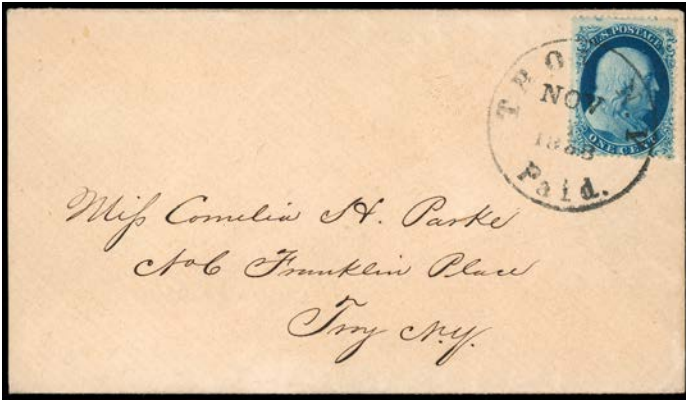 U.S. POSTAGE
ONE CENT
TROY N.Y.
NOV
1858
Paid.
Miss Cornelia H. Parke
No 6 Franklin Place
Troy N.Y.